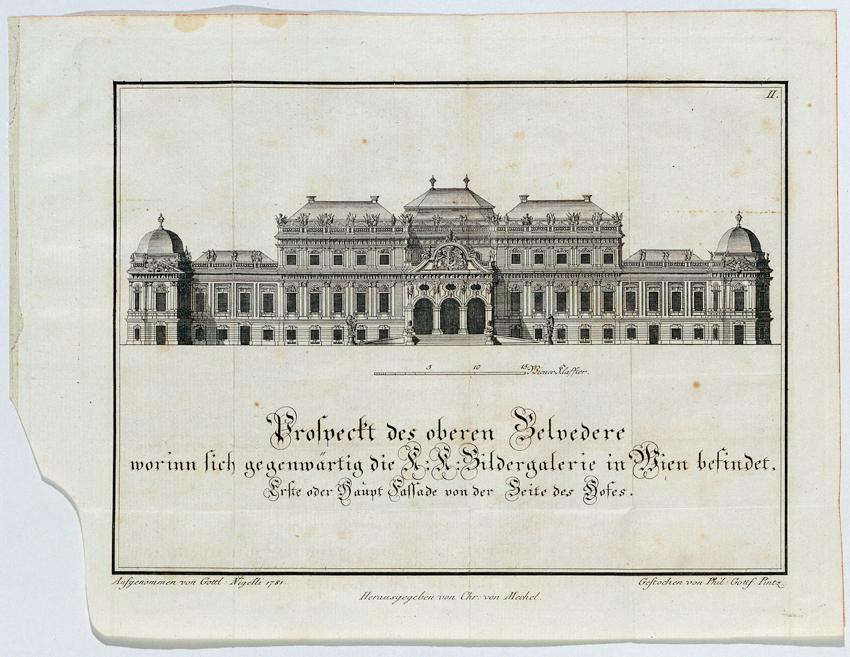 II.
5 10 15 Wiener Klafter.
Prospeckt des oberen Belvedere
worinn sich gegenwärtig die K: K: Bildergalerie in Wien befindet.
Erste oder Haupt Fassade von der Seite des Hofes.
Aufgenommen von Gottl: Nigelli 1781.
Gestochen von Phil. Gottf. Pintz
Herausgegeben von Chr: von Mechel.